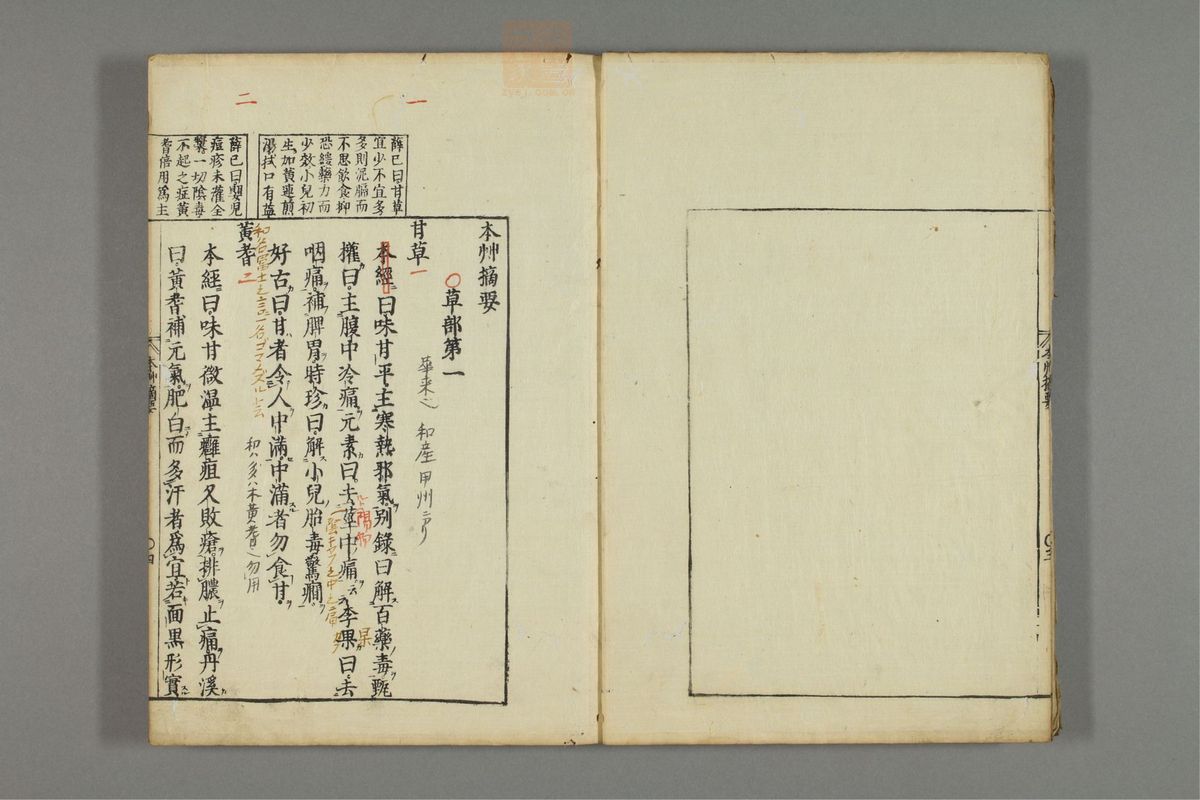 本艸摘要
〇草部第一
華来之 和産甲州ニアリ
甘草 一
本經曰味甘平主寒熱邪氣別錄曰解百藥毒甄
權曰主腹中冷痛元素曰去莖中痛李杲曰去
咽痛補脾胃時珍曰解小兒胎毒驚癇
好古曰甘者令人中滿中滿者勿食甘
黃耆 二
和ハ多ハ木黃耆之勿用
本經曰味甘微溫主癰疽久敗瘡排膿止痛丹溪
曰黃耆補元氣肥白而多汗者爲宜若面黒形實
一
薛已曰甘草
宜少不宜多
多則泥膈而
不思飲食抑
恐緩藥力而
少效小兒初
生加黃連煎
湯拭口有益
二
薛已曰嬰兒
痘疹未灌全
一切陰毒
不起之症黃
耆倍用爲主
本艸摘要
〇四
本艸摘要
〇三